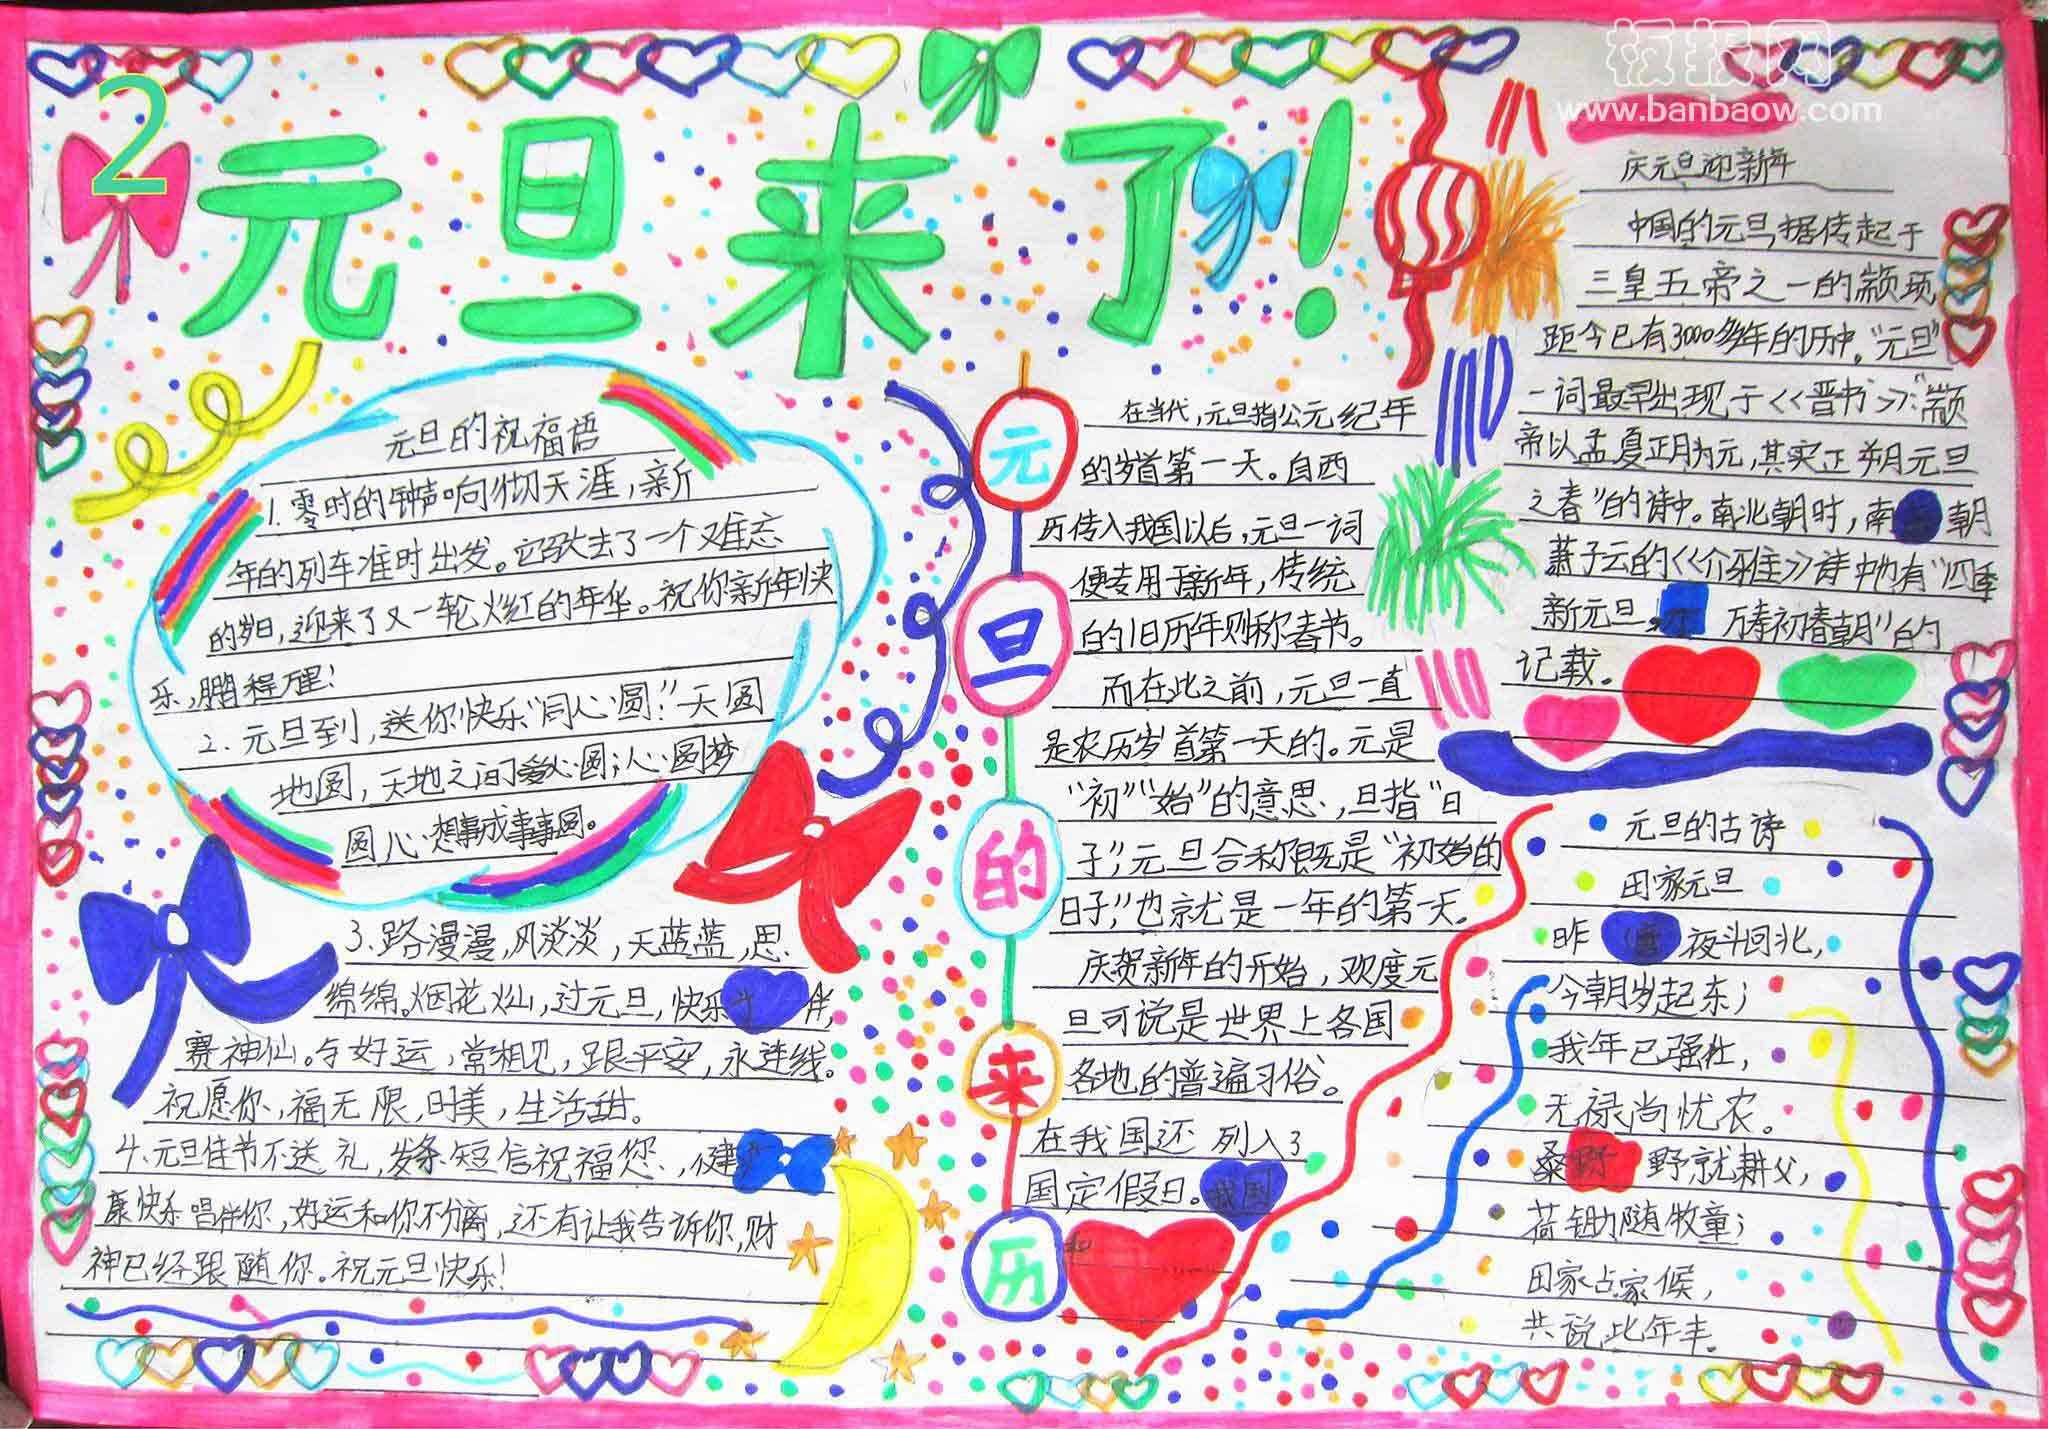 板报网
www.banbaow.com
2
元旦来了!
元旦的祝福语
1.零时的钟声响彻天涯,新
年的列车准时出发。它驮去了一个又难忘
的岁日,迎来了又一轮火红的年华。祝你新年快
乐,鹏程万里!
2.元旦到,送你快乐"同心圆!"天圆
地圆,天地之间爱心圆;心圆梦
圆心想事成事事圆。
3.路漫漫,风淡淡,天蓝蓝,思
绵绵。烟花灿,过元旦,快乐 伴,
赛神仙。与好运,常相见,跟平安,永连线。
祝愿你,福无限,时美,生活甜。
4.元旦佳节不送礼,发条短信祝福您,健
康快乐唱伴你,好运和你不分离,还有让我告诉你,财
神已经跟随你。祝元旦快乐!
元旦的来历
在当代,元旦指公元纪年
的岁首第一天。自西
历传入我国以后,元旦一词
便专用于新年,传统
的旧历年则称春节。
而在此之前,元旦一直
是农历岁首第一天的。元是
"初""始"的意思,旦指"日
子",元旦合称既是"初始的
日子",也就是一年的第一天。
庆贺新年的开始,欢度元
旦可说是世界上各国
各地的普遍习俗。
在我国还列入了
国定假日。我国
庆元旦迎新年
中国的元旦,据传起于
三皇五帝之一的颛顼
距今已有3000多年的历史。"元旦"
一词最早出现于<<晋书>>:"颛
帝以孟夏正月为元,其实正朔元旦
之春"的诗中。南北朝时,南 朝
萧子云的<<介雅>>诗中也有"四季
新元旦, 万寿初春朝"的
记载。
元旦的古诗
田家元旦
昨 夜斗回北,
今朝岁起东;
我年已强壮,
无禄尚忧农。
桑野 野就耕父,
荷锄随牧童;
田家占家候,
共说此年丰。